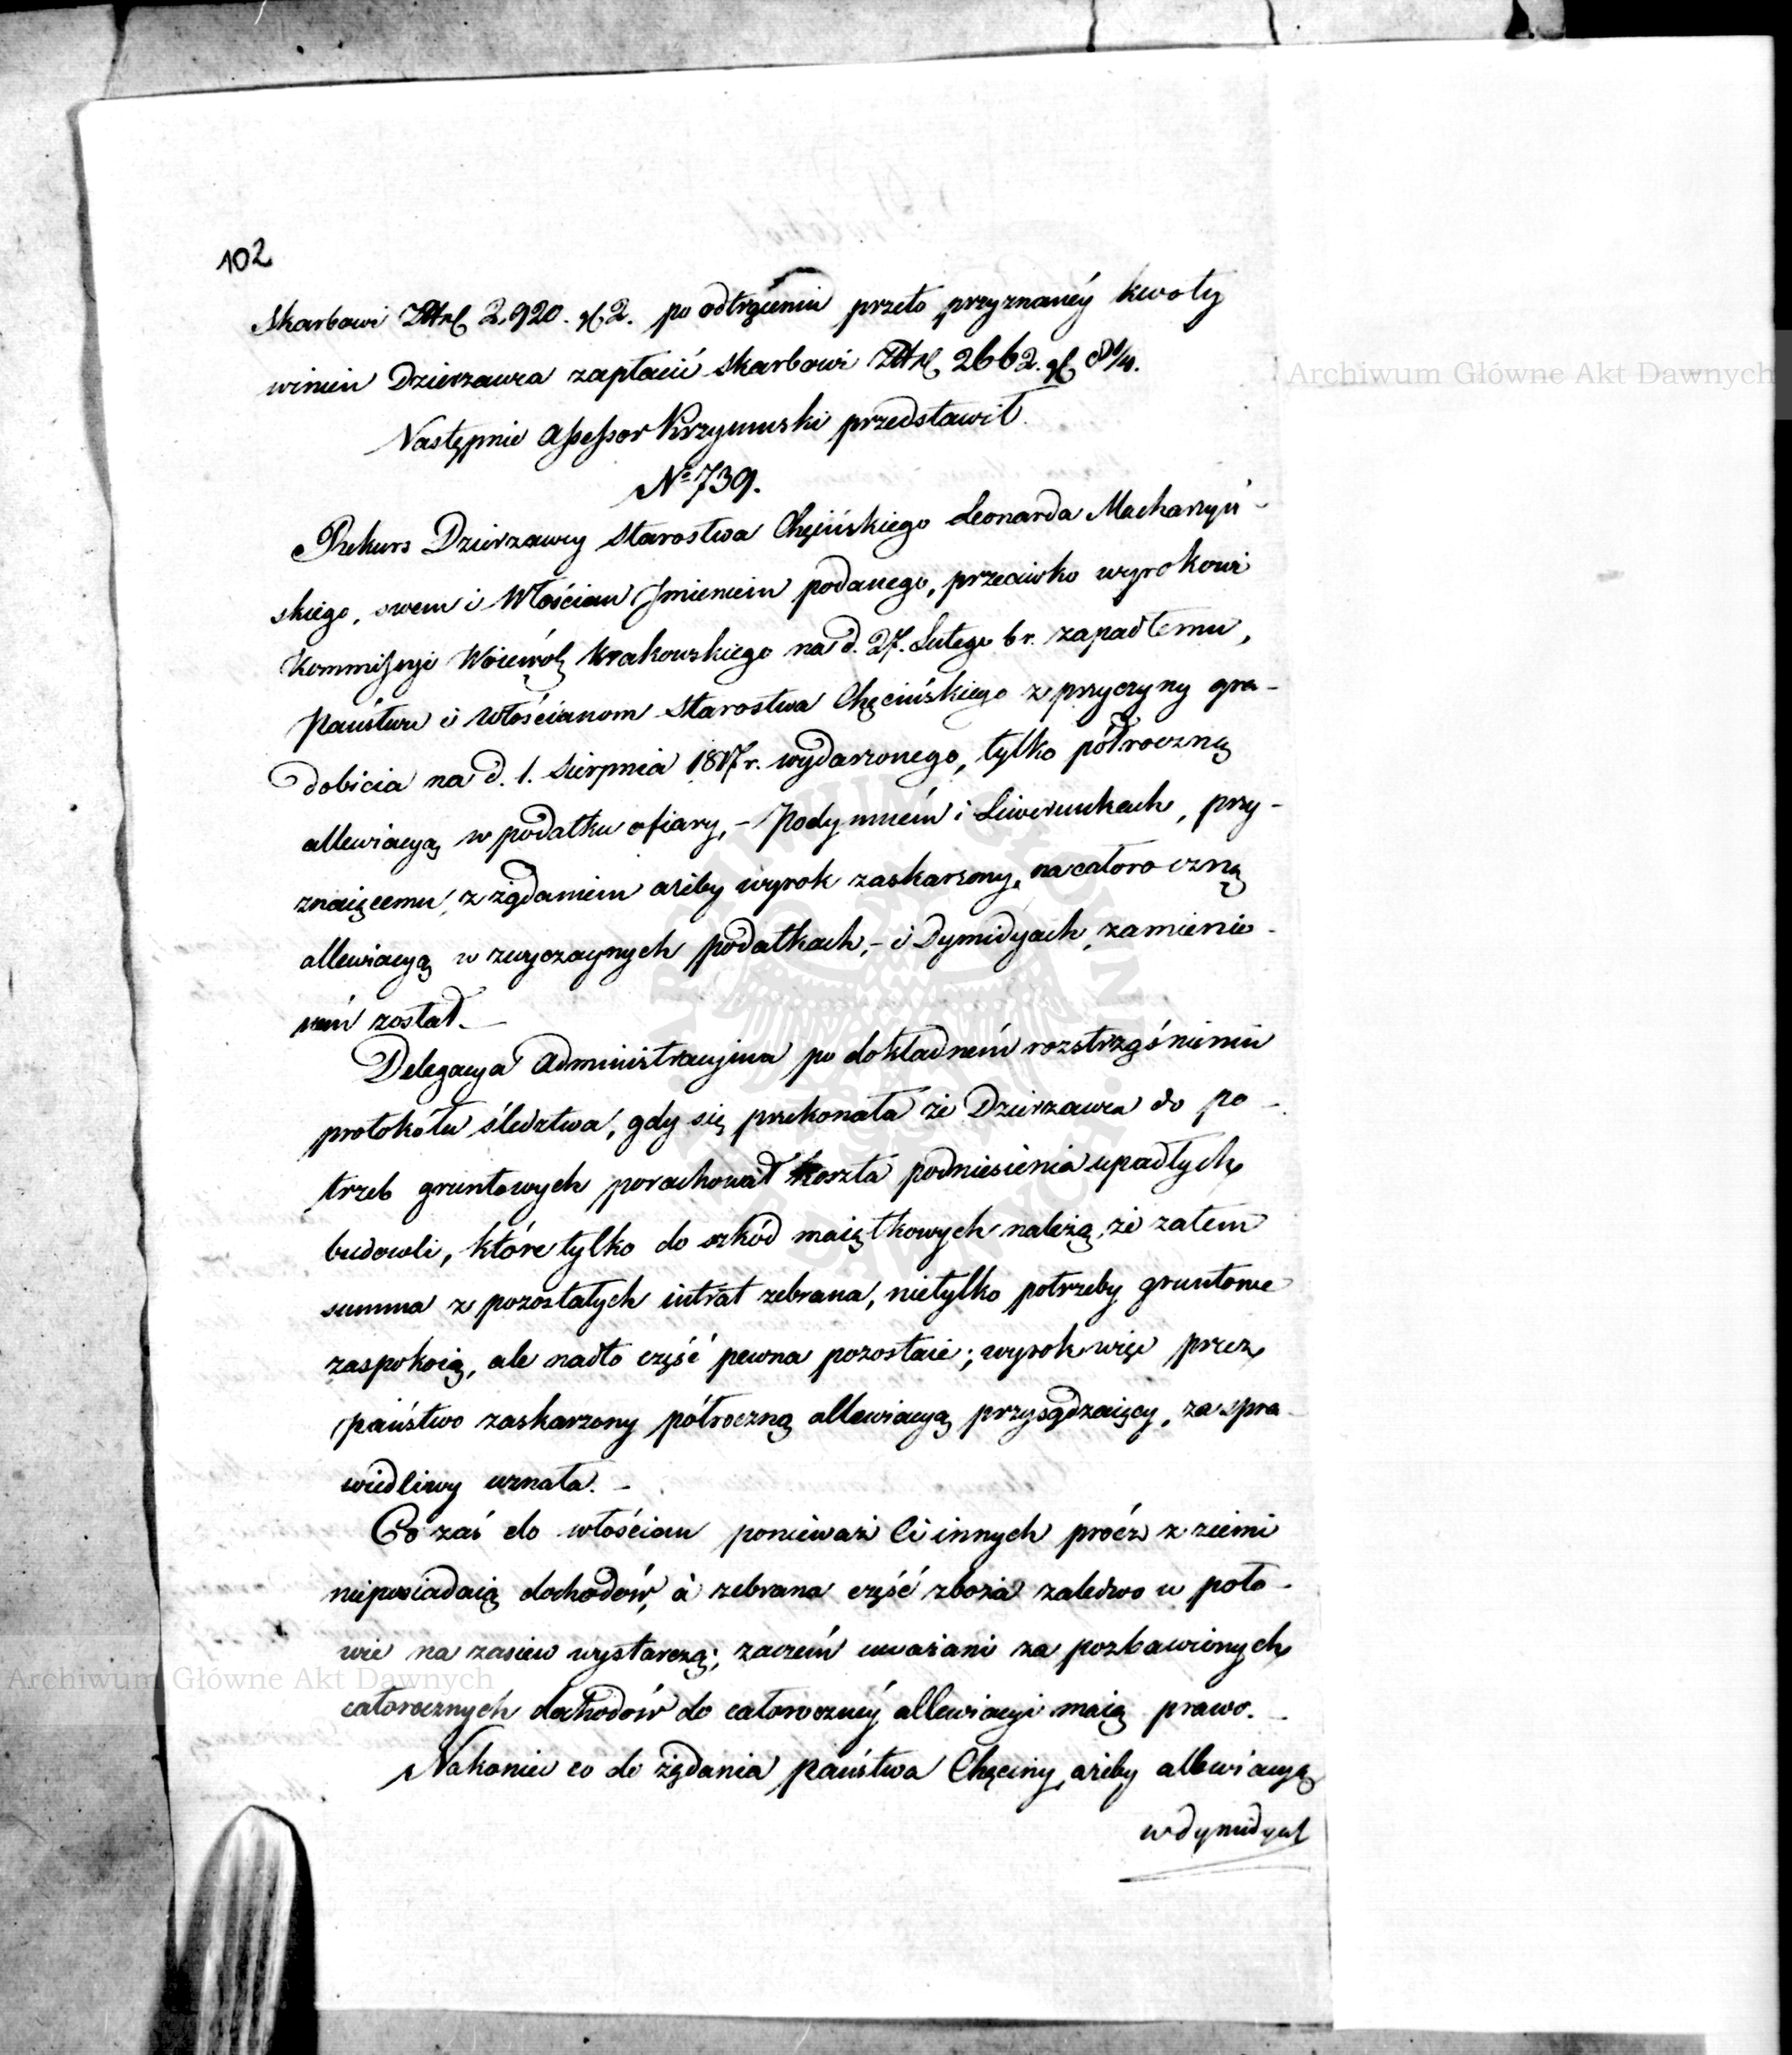 102
Skarbowi Złł 2,920. gr 2. po odtrąceniu przeto przyznanéy kwoty
winien Dzierzawca zapłacić skarbowi Złł 2662. gr 8¼.
Następnie Assessor Krzymuski przedstawił.
No 739.
Rekurs Dzierzawcy Starostwa Chęcińskiego Leonarda Macharzyń-
skiego, swem i Włościan Jmieniem podanego, przeciwko wyrokowi
Kommissyi Woiewódz Krakowskiego na d. 27. Lutego br. zapadłemu,
Państwu i Włościanom Starostwa Chęcińskiego z przyczyny gra-
dobicia na d. 1. Sierpnia 1817 r. wydarzonego, tylko półroczną
allewiacyą w podatku ofiary, - Podymném i Liwerunkach, przy-
znaiącemu, z żądaniem ażeby wyrok zaskarzony, na całoroczną
allewiacyą w zwyczaynych podatkach, - i Dymidyach, zamienio-
ném został. -
Delegacya Administracyina po dokładném rozstrząśnieniu
protokółu śledztwa, gdy się przekonała że Dzierzawca do po-
trzeb gruntowych porachował koszta podniesienia upadłych
budowli, które tylko do szkód maiątkowych należą, że zatem
summa z pozostałych intrat zebrana, nietylko potrzeby gruntowe
zaspokoią, ale nadto część pewna pozostaie; wyrok więc przez
państwo zaskarzony półroczną allewiacyą przysądzaiący, za spra-
wiedliwy uznała. -
Co zaś do włościan ponieważ Ci innych prócz z ziemi
nieposiadaią dochodów, à zebrana część zboża zaledwo w poło-
wie na zasiew wystarczą; zaczém uważani za pozbawionych
całorocznych dochodów do całorocznéy allewiacyi maią prawo. -
Nakoniec co do żądania państwa Chęciny, ażeby allewiacyą
w dymidyach
Archiwum Główne Akt Dawnych
Archiwum Główne Akt Dawnych